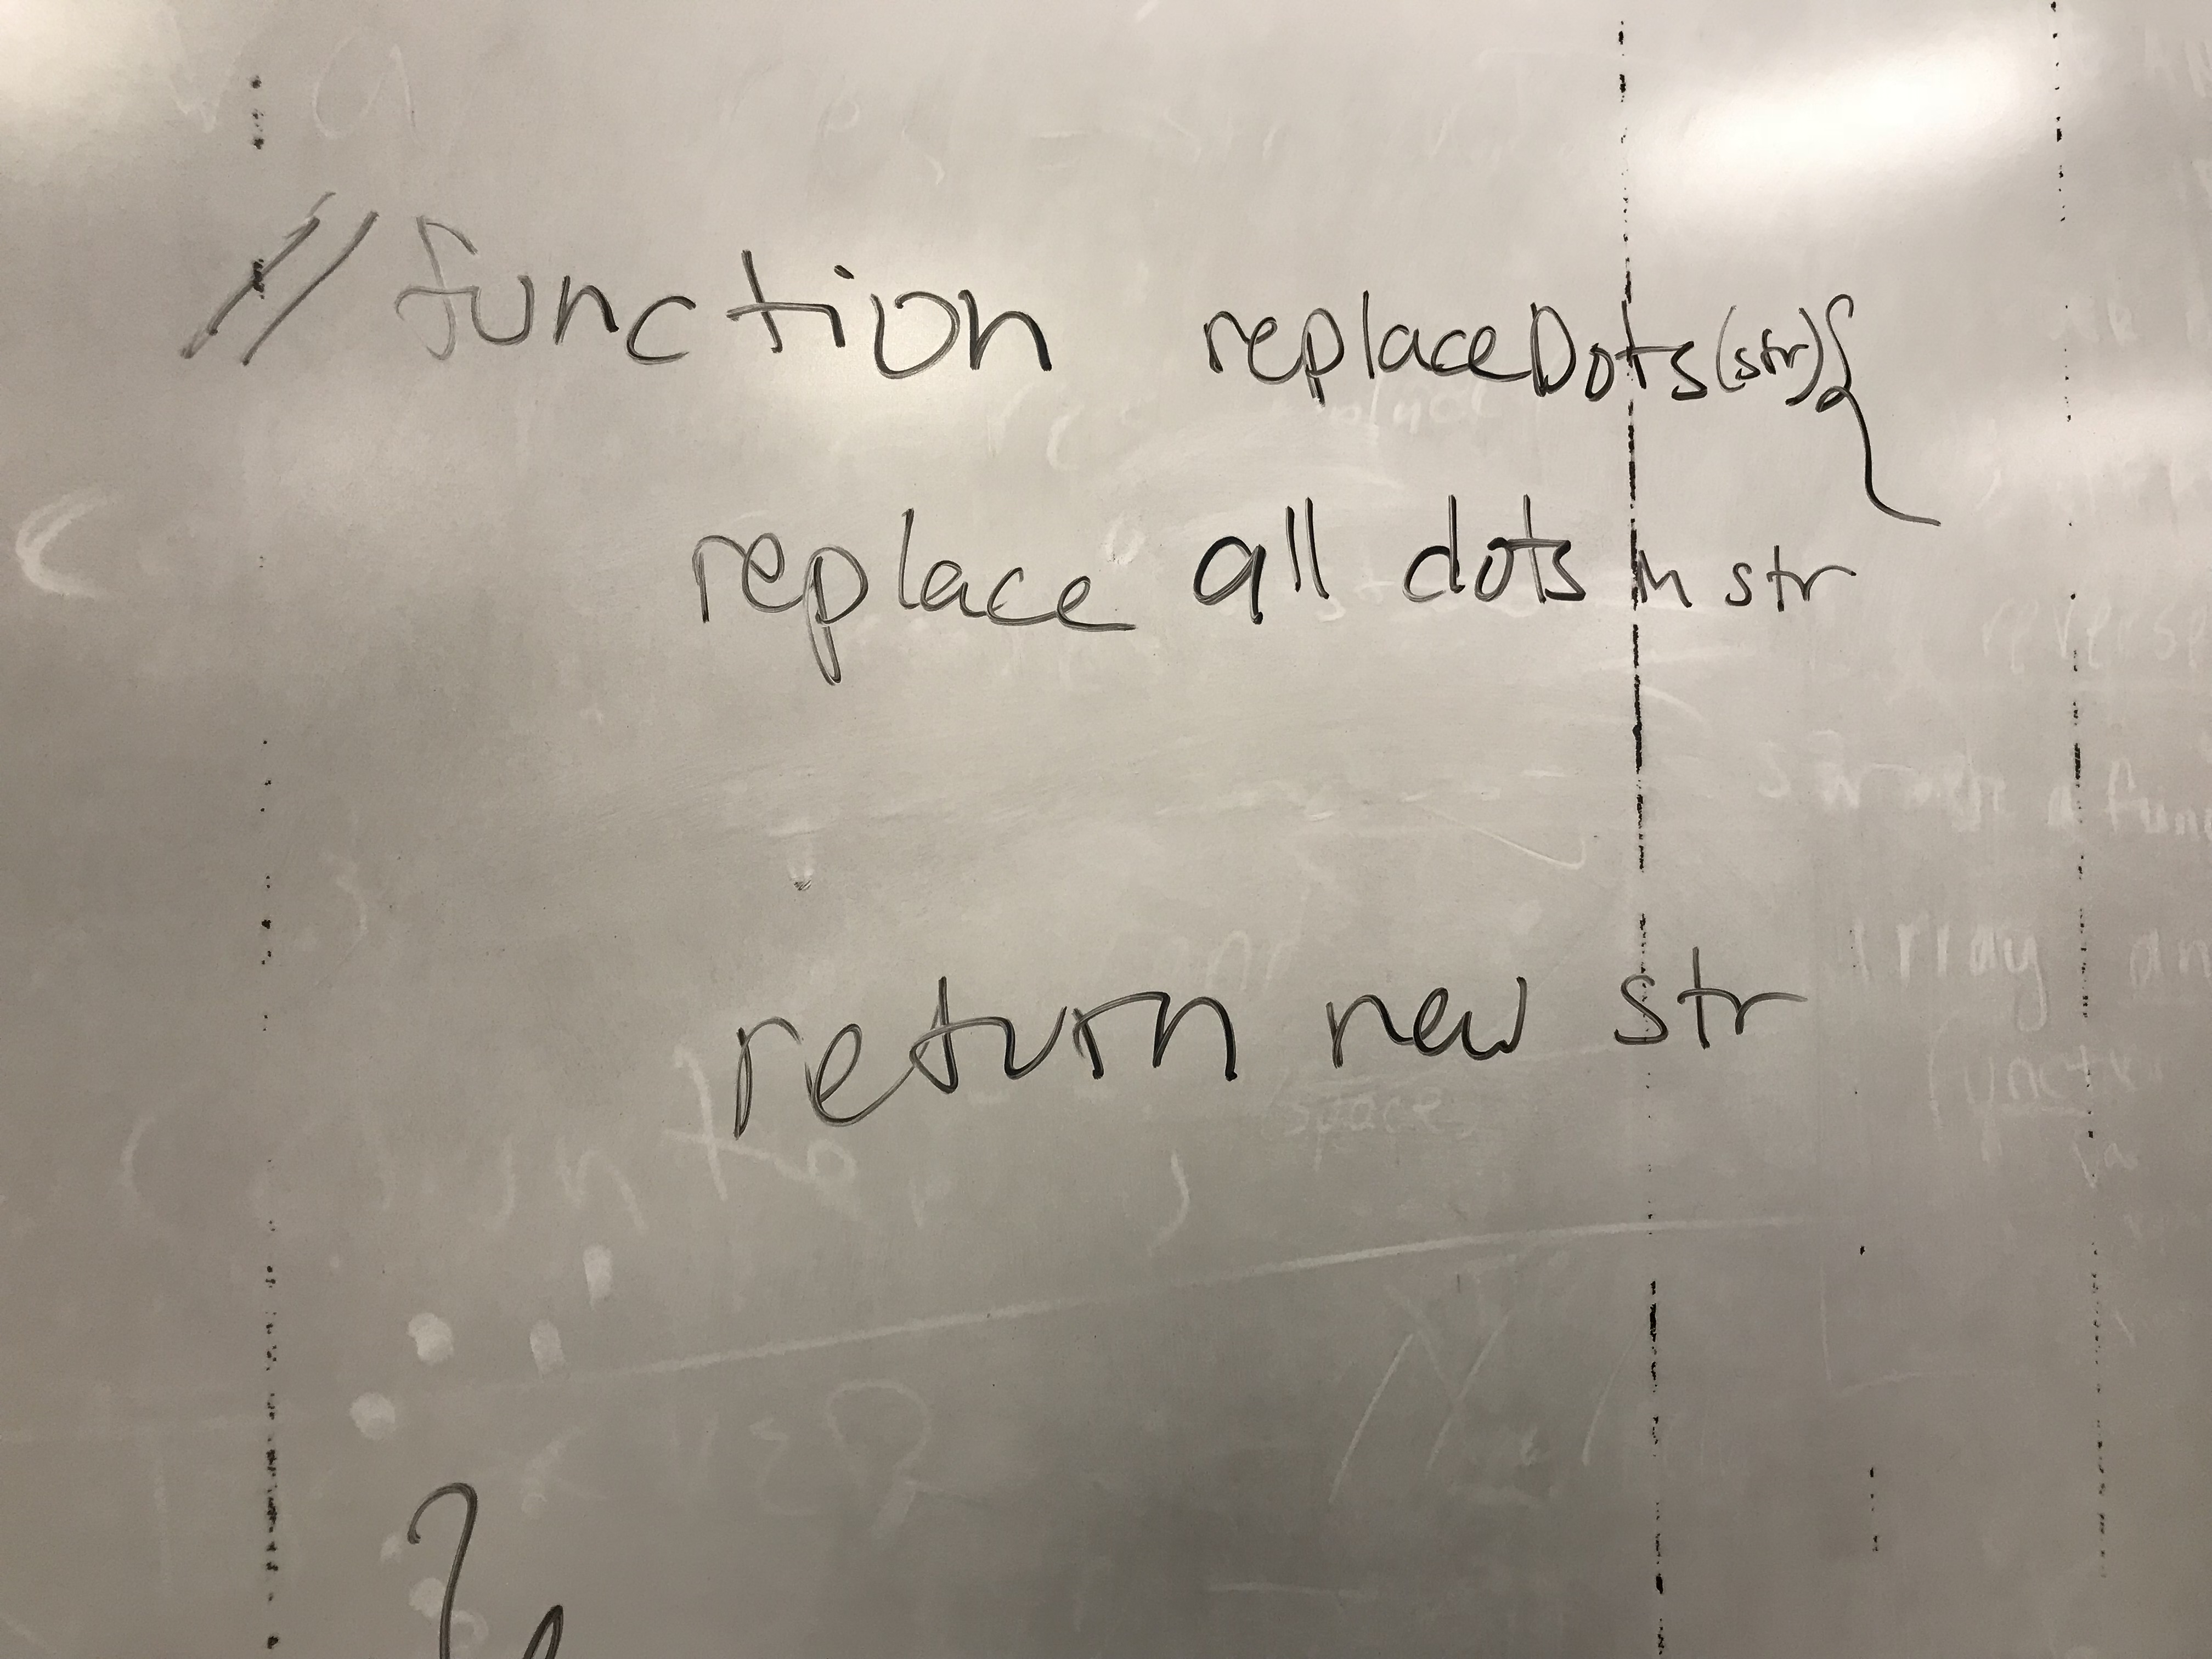 // function replaceDots(str){
replace all dots in str
return new str
}